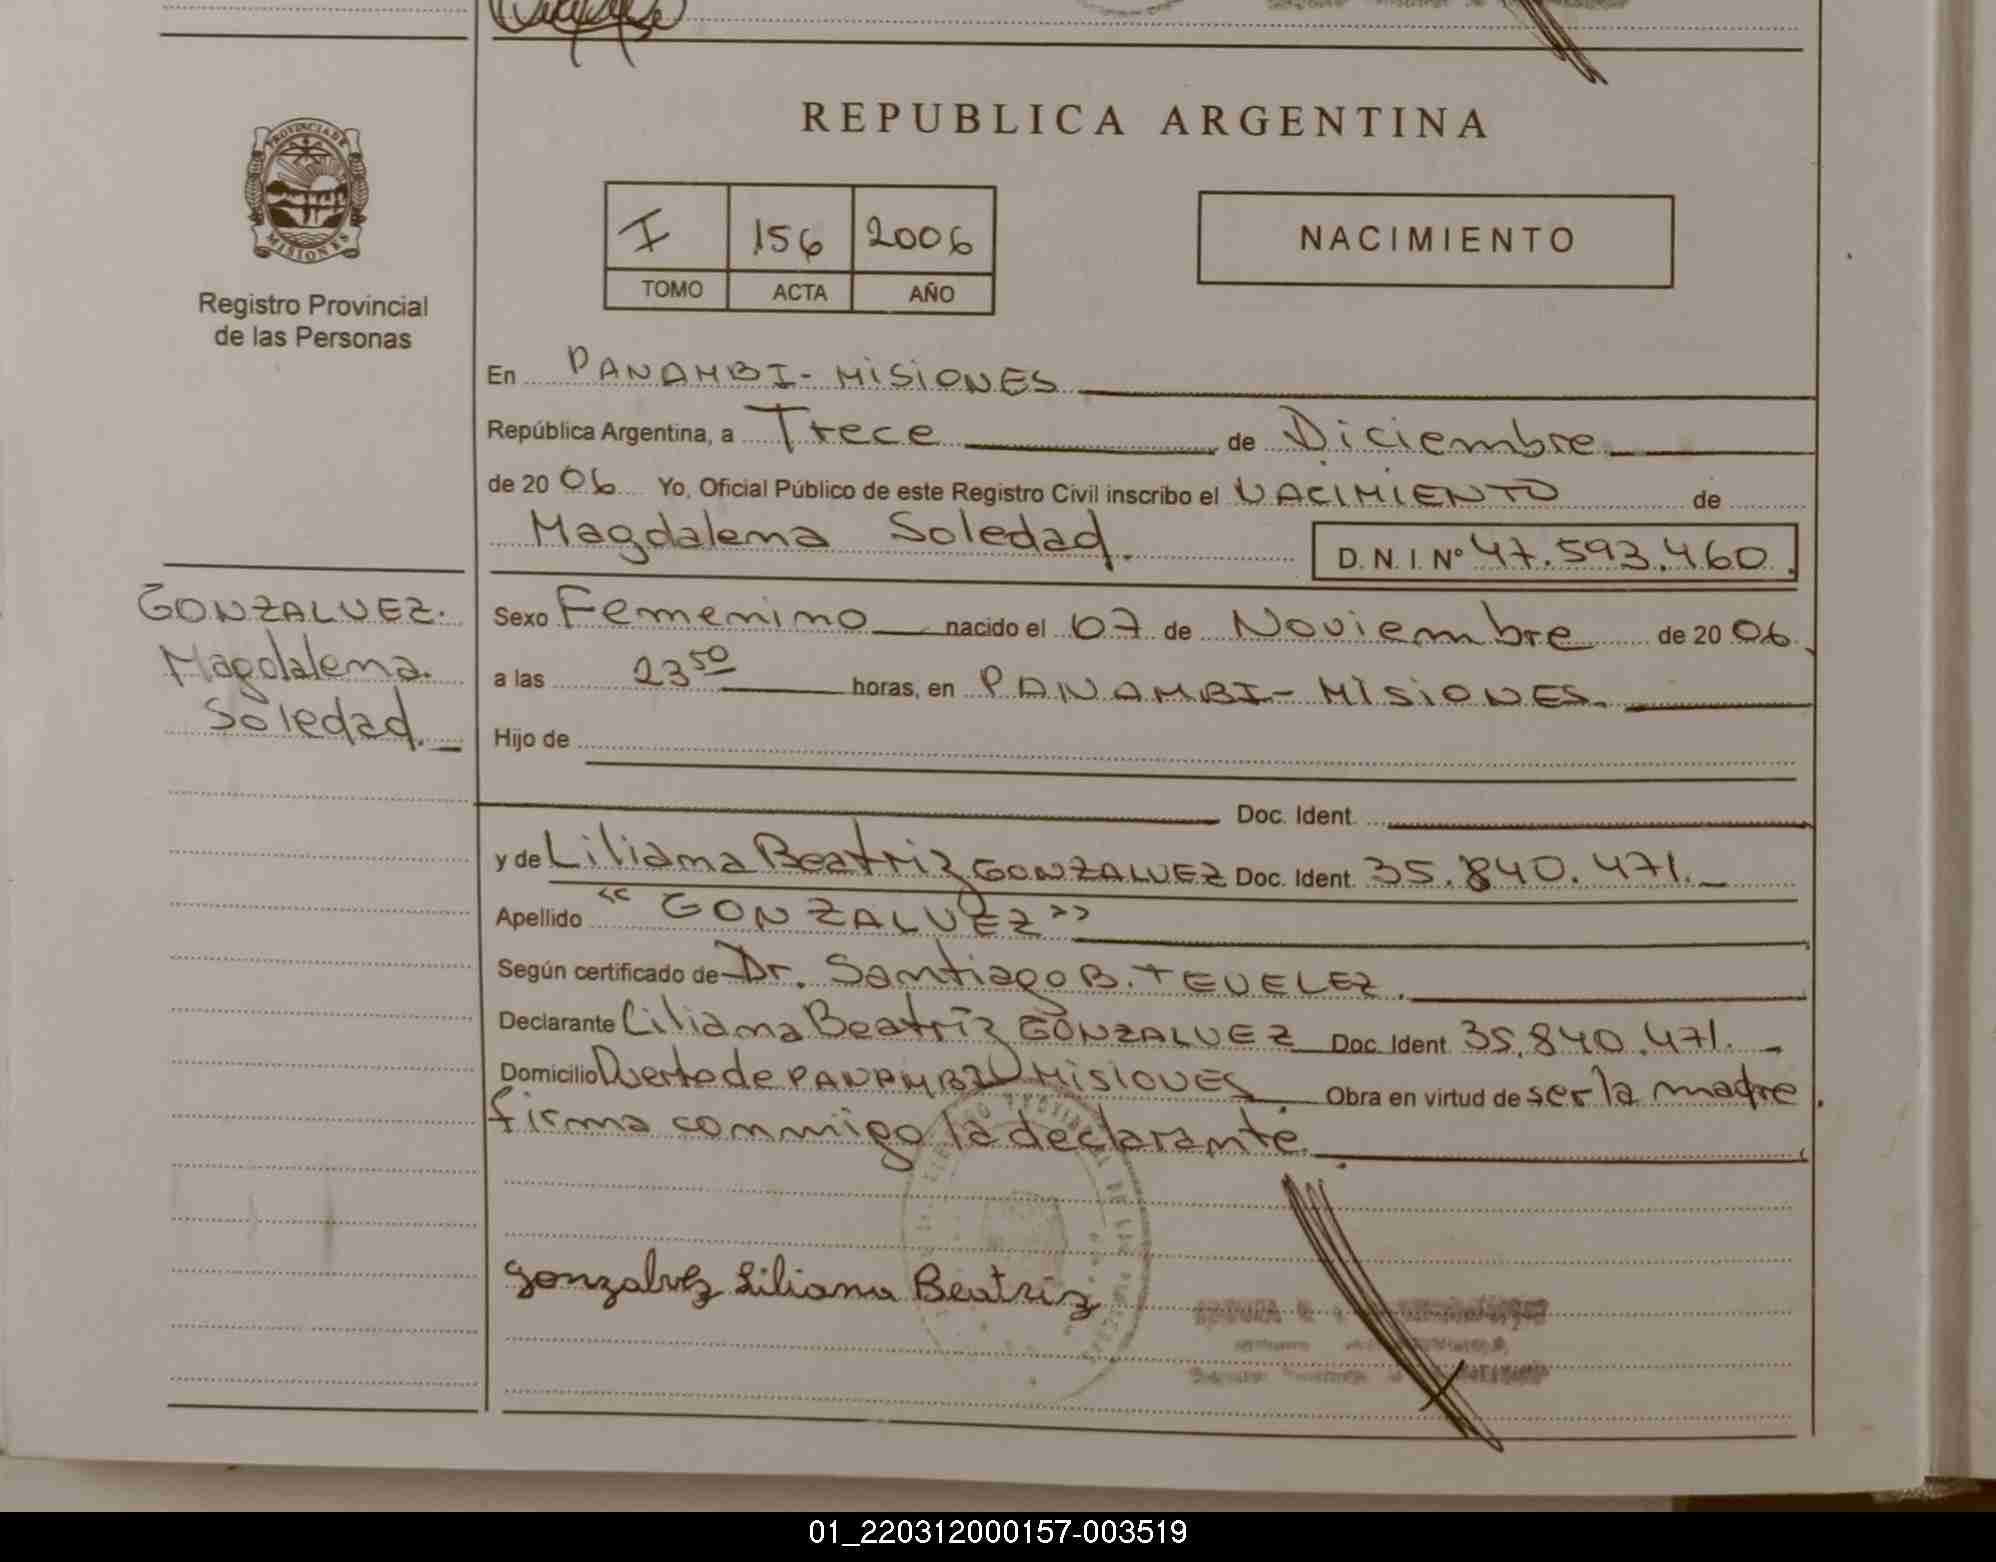 REPUBLICA ARGENTINA
PROVINCIA DE
MISIONES
Registro Provincial
de las Personas
I 156 2006
TOMO ACTA AÑO
NACIMIENTO
En PANAMBI - MISIONES
República Argentina, a Trece de Diciembre
de 2006 Yo, Oficial Público de este Registro Civil inscribo el NACIMIENTO de
Magdalena Soledad. D. N. I. Nº 47.593.460.
GONZALVEZ.
Magdalena
Soledad.
Sexo Femenino nacido el 07 de Noviembre de 2006
a las 23 50 horas, en PANAMBI - MISIONES.
Hijo de
Doc. Ident.
y de Liliana Beatriz GONZALVEZ Doc. Ident. 35.840.471.
Apellido “GONZALVEZ”
Según certificado de Dr. Santiago B. TEVELEZ.
Declarante Liliana Beatriz GONZALVEZ Doc. Ident. 35.840.471.
Domicilio Puerto de PANAMBI MISIONES Obra en virtud de ser la madre
firma conmigo la declarante.
Gonzalvez Liliana Beatriz
01_220312000157-003519